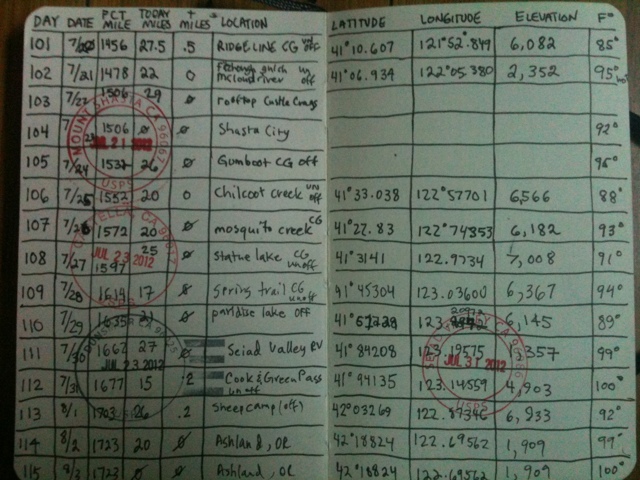 DAY DATE PCT MILE TODAY MILES + MILES LOCATION LATITUDE LONGITUDE ELEVATION F°
101 7/20 1456 27.5 .5 RIDGELINE CG off 41°10.607 121°52.849 6,082 85°
102 7/21 1478 22 0 mccloud river off 41°06.934 122°05.380 2,352 95°
103 7/22 1506 29 0 rooftop Castle Crags
104 1506 0 0 Shasta City 92°
105 7/24 1532 26 0 Gumboot CG off 96°
106 7/25 1552 20 0 Chilcoot creek un off 41°33.038 122°57701 6,566 88°
107 7/26 1572 20 0 mosquito creek CG 41°22.83 122°74353 6,182 93°
108 7/27 1597 25 0 statue lake CG un off 41°3141 122.9734 7,008 91°
109 7/28 1614 17 spring trail CG un off 41°45304 123.03600 6,367 94°
110 7/29 1635 21 0 paridise lake off 41° 123. 6,145 89°
111 7/30 1662 27 0 Seiad Valley RV 41°84208 123.19575 357 99°
112 7/31 1677 15 .2 Cook & Green Pass un off 41°94135 123.14559 4,903 100°
113 8/1 1703 26 .2 sheep camp (off) 42°03269 122.87346 6,933 92°
114 8/2 1723 20 0 Ashland, OR 42°18824 122.69562 1,909 99°
115 8/3 1723 0 0 Ashland, OR 42°18824 122.69562 1,909 100°
MOUNT SHASTA CA 96067
JUL 21 2012
USPS
CASTELLA, CA 96017
JUL 23 2012
DUNSMUIR CA 96025
JUL 23 2012
JUL 31 2012
USPS